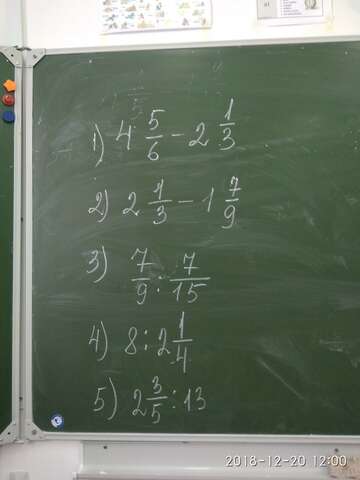 1) 4 5/6 - 2 1/3
2) 2 1/3 - 1 7/9
3) 7/9 : 7/15
4) 8 : 2 1/4
5) 2 3/5 : 13
2018-12-20 12:00